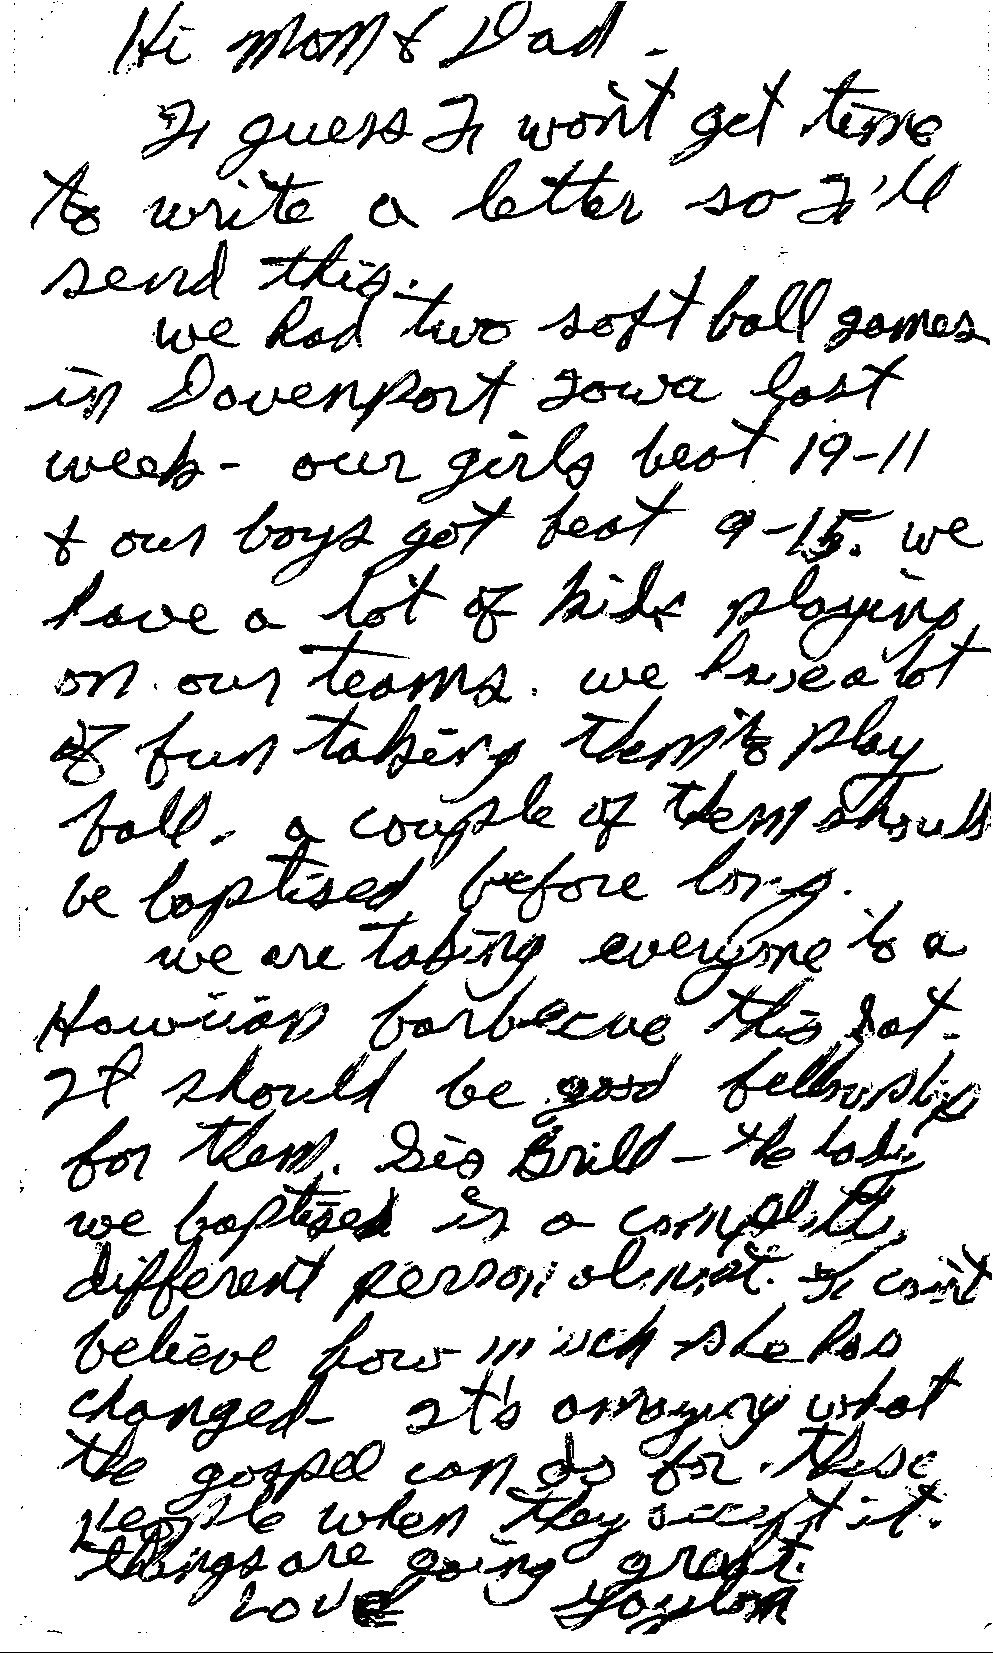 Hi Mom & Dad -
I guess I won't get time
to write a letter so I'll
send this.
we had two soft ball games
in Davenport Iowa last
week - our girls beat 19-11
& our boys got beat 9-15. we
have a lot of kids playing
on our teams. we have a lot
of fun taking them to play
ball. a couple of them should
be baptised before long.
we are taking everyone to a
Hawiian barbecue this Sat.
It should be good fellowship
for them. Sis Brill - the lady
we baptised is a completly
different person almost. I can't
believe how much she has
changed - It's amazing what
the gospel can do for these
people when they accept it.
things are going great.
Love Gaylon